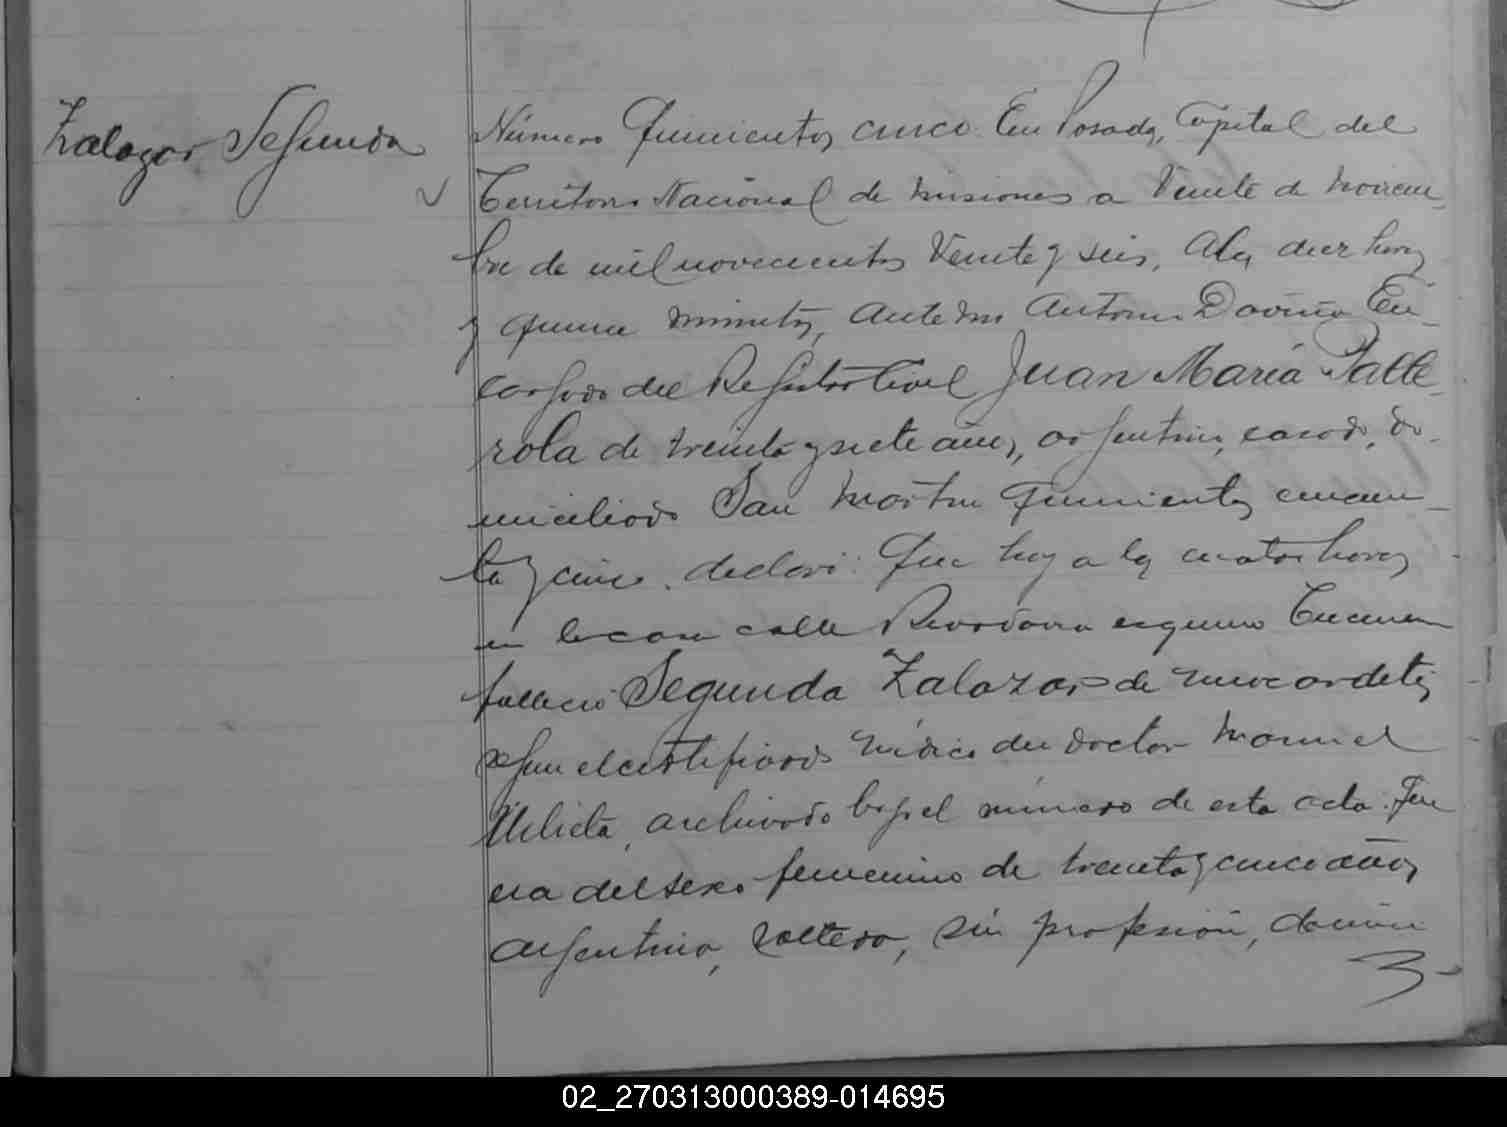 Zalazar Segunda
Número Quinientos cinco. En Posadas, Capital del
Territorio Nacional de Misiones a Veinte de Noviem
bre de mil novecientos Veinte y seis, a las diez horas
y quince minutos, ante mi Antonio Daviña En-
cargado del Registro Civil Juan María Palle-
rola de treinta y siete años, argentino, casado, do-
miciliado San Martin Quinientos cincuen-
ta y cinco, declaró: Que hoy a las cuatro horas
en la casa calle Rivadavia esquina Tucuman
falleció Segunda Zalazar de miocarditis
segun el certificado médico del doctor Manuel
archivado bajo el número de esta acta. Que
era del sexo femenino de treinta y cinco años,
argentina, soltera, sin profesión, domici
02_270313000389-014695